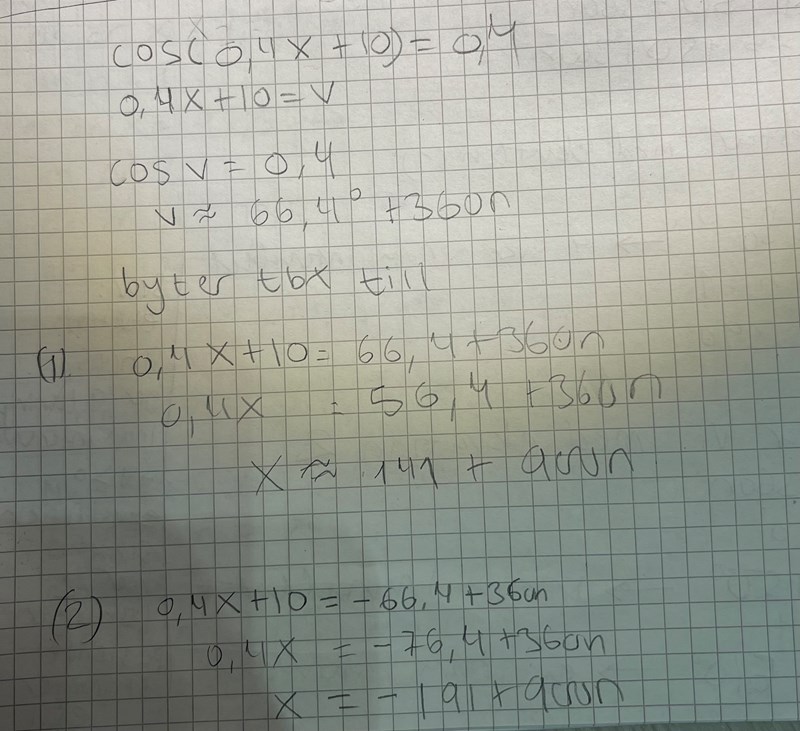 cos(0,4x+10)=0,4
0,4x+10=v
cos v=0,4
v≈ 66,4° +360n
byter tbx till
(1) 0,4x+10= 66,4+360n
0,4x = 56,4 +360n
x ≈ 141 + 900n
(2) 0,4x+10=-66,4+360n
0,4x = -76,4+360n
x = -191+900n